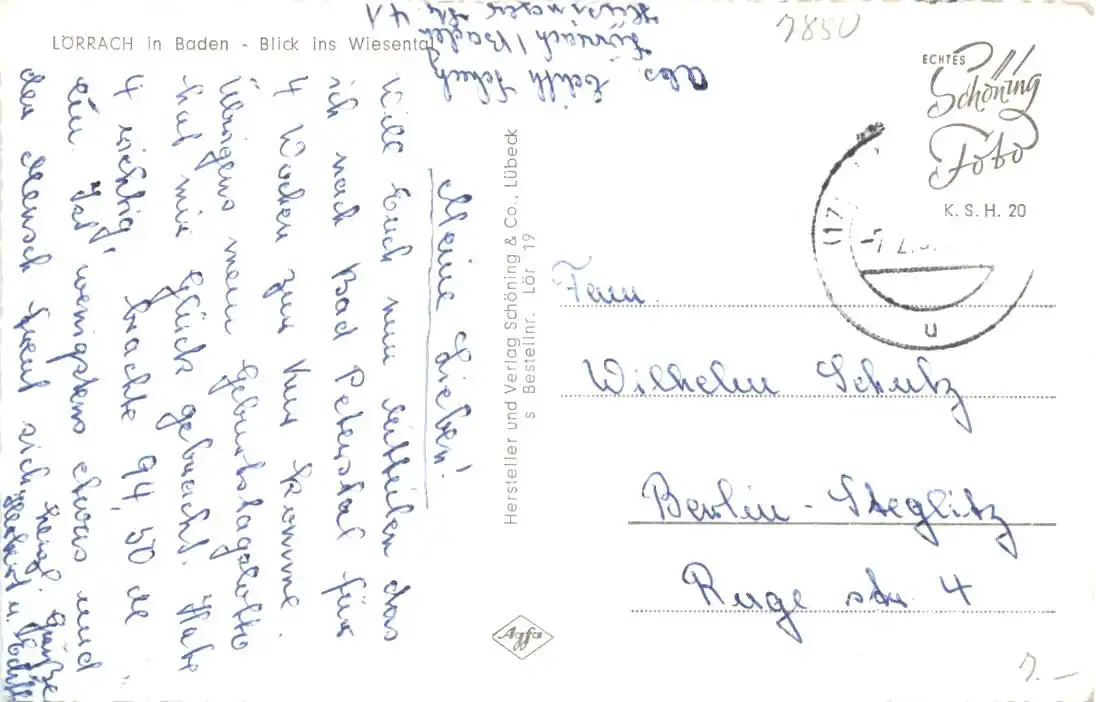 LÖRRACH in Baden - Blick ins Wiesental
7850
Abs. Edith Schulz
Lörrach/Baden
41
Meine Lieben!
Will Euch nun mitteilen das
ich nach Bad Peterstal für
4 Wochen zur Kur komme.
Übrigens mein Geburtstagslotto
hat mir Glück gebracht. Habe
4 richtig, brachte 94,50 DM
ein. Ist wenigstens etwas und
der Mensch freut sich.
Herzl. Grüße
Herbert u. Edith
Hersteller und Verlag Schöning & Co., Lübeck
s Bestellnr. Lör 19
ECHTES
Schöning
Foto
K. S. H. 20
(17
u
Fam.
Wilhelm Schulz
Berlin-Steglitz
Ruge str. 4
Agfa